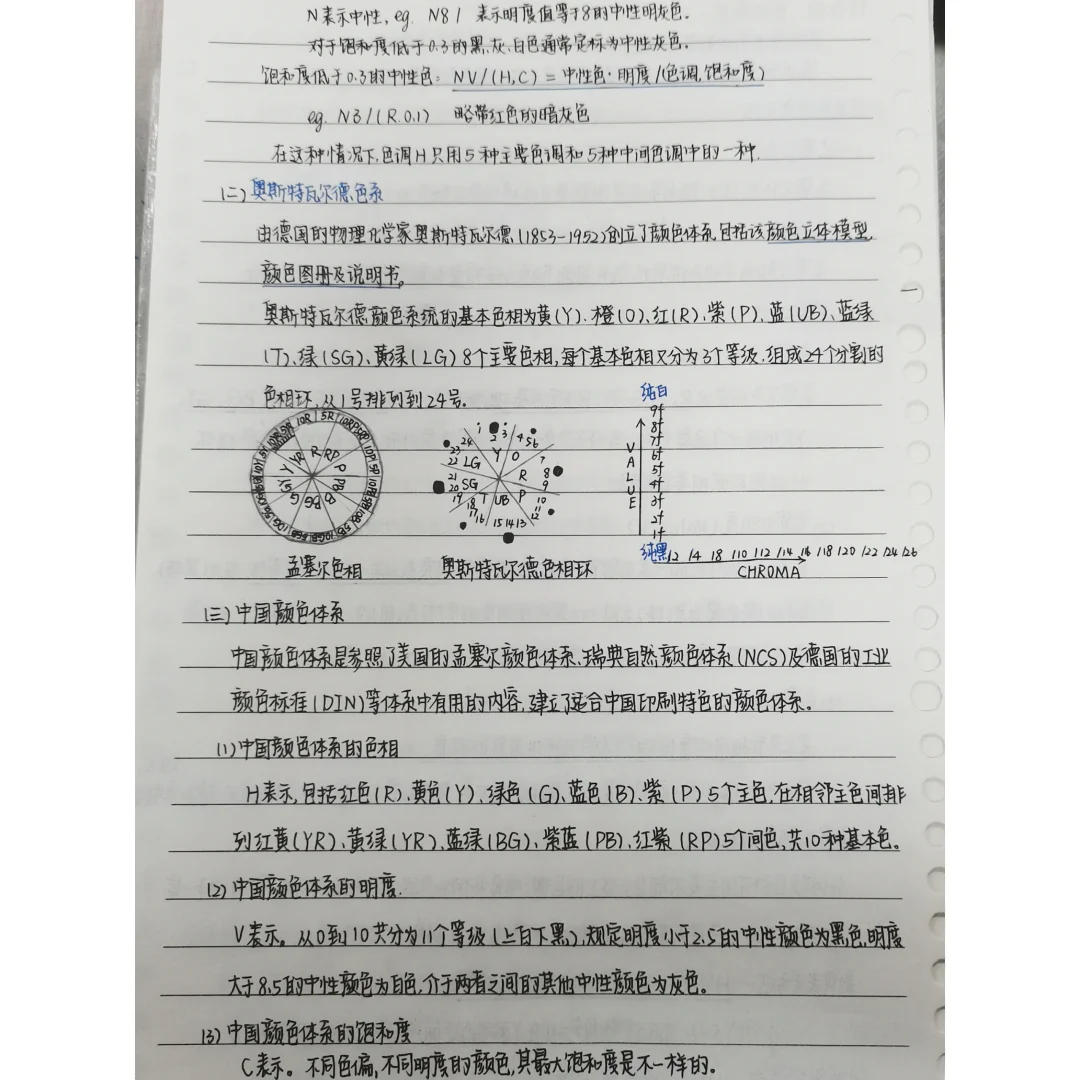 N表示中性, eg. N8/ 表示明度值等于8的中性明灰色.
对于饱和度低于0.3的黑.灰.白色通常定标为中性灰色.
饱和度低于0.3的中性色: NV/(H,C) = 中性色·明度/(色调,饱和度)
eg. N3/(R.0.1) 略带红色的暗灰色
在这种情况下,色调H只用5种主要色调和5种中间色调中的一种.
(二)奥斯特瓦尔德色系
由德国的物理化学家奥斯特瓦尔德(1853-1952)创立了颜色体系,包括该颜色立体模型,
颜色图册及说明书。
奥斯特瓦尔德颜色系统的基本色相为黄(Y)、橙(O)、红(R)、紫(P)、蓝(UB)、蓝绿
(T)、绿(SG)、黄绿(LG)8个主要色相,每个基本色相又分为3个等级.组成24个分割的
色相环,从1号排列到24号.
R RP P PB B BG G GY Y YR
5R 10RP 5RP 10P 5P
10R
孟塞尔色相
1 2 3 4 5 6 7 8 9 10 11 12 13 14 15 16 17 18 19 20 21 22 23 24
Y O R P UB T SG LG
奥斯特瓦尔德色相环
纯白
9/
8/
7/
6/
5/
4/
3/
2/
1/
VALUE
纯黑 /2 /4 /8 /10 /12 /14 /16 /18 /20 /22 /24 /26
CHROMA
(三)中国颜色体系
中国颜色体系是参照了美国的孟塞尔颜色体系、瑞典自然颜色体系(NCS)及德国的工业
颜色标准(DIN)等体系中有用的内容,建立了适合中国印刷特色的颜色体系。
(1)中国颜色体系的色相
H表示,包括红色(R)、黄色(Y)、绿色(G)、蓝色(B)、紫(P)5个主色,在相邻主色间排
列红黄(YR)、黄绿(YR)、蓝绿(BG)、紫蓝(PB)、红紫(RP)5个间色,共10种基本色。
(2)中国颜色体系的明度.
V表示。从0到10共分为11个等级(上白下黑),规定明度小于2.5的中性颜色为黑色,明度
大于8.5的中性颜色为白色,介于两者之间的其他中性颜色为灰色。
(3)中国颜色体系的饱和度
C表示。不同色偏,不同明度的颜色,其最大饱和度是不一样的。